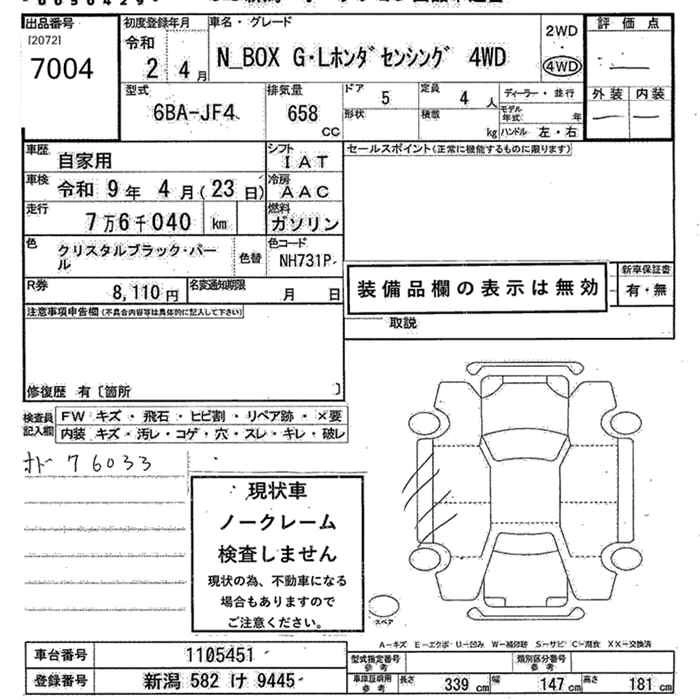 出品番号
[2072]
7004
初度登録年月
令和
2 4月
車名・グレード
N_BOX G・Lホンダセンシング 4WD
2WD
・
4WD
評価点
外装 内装
型式
6BA-JF4
排気量
658
cc
ドア 5
定員 4 人
形状
積載 kg
ディーラー・並行
モデル年式 年
ハンドル 左・右
車歴 自家用
シフト IAT
車検 令和 9年 4月(23日)
冷房 AAC
走行 7万6千040 km
燃料 ガソリン
色 クリスタルブラック・パール
色替
色コード NH731P
R券 8,110円
名変通知期限 月 日
セールスポイント(正常に機能するものに限ります)
装備品欄の表示は無効
新車保証書
有・無
取説
注意事項申告欄(不具合内容等は具体的に記入して下さい)
修復歴 有〔箇所 〕
検査員記入欄
FW キズ・飛石・ヒビ割・リペア跡・×要
内装 キズ・汚レ・コゲ・穴・スレ・キレ・破レ
オド 76033
現状車
ノークレーム
検査しません
現状の為、不動車になる
場合もありますので
ご注意ください。
スペア
A-キズ E-エクボ・U-凹み W-補修跡 S-サビ C-腐食 XX-交換済
車台番号 1105451
登録番号 新潟 582 け 9445
型式指定番号 参考
類別区分番号 参考
車庫証明用 参考
長さ 339 cm 幅 147 cm 高さ 181 cm